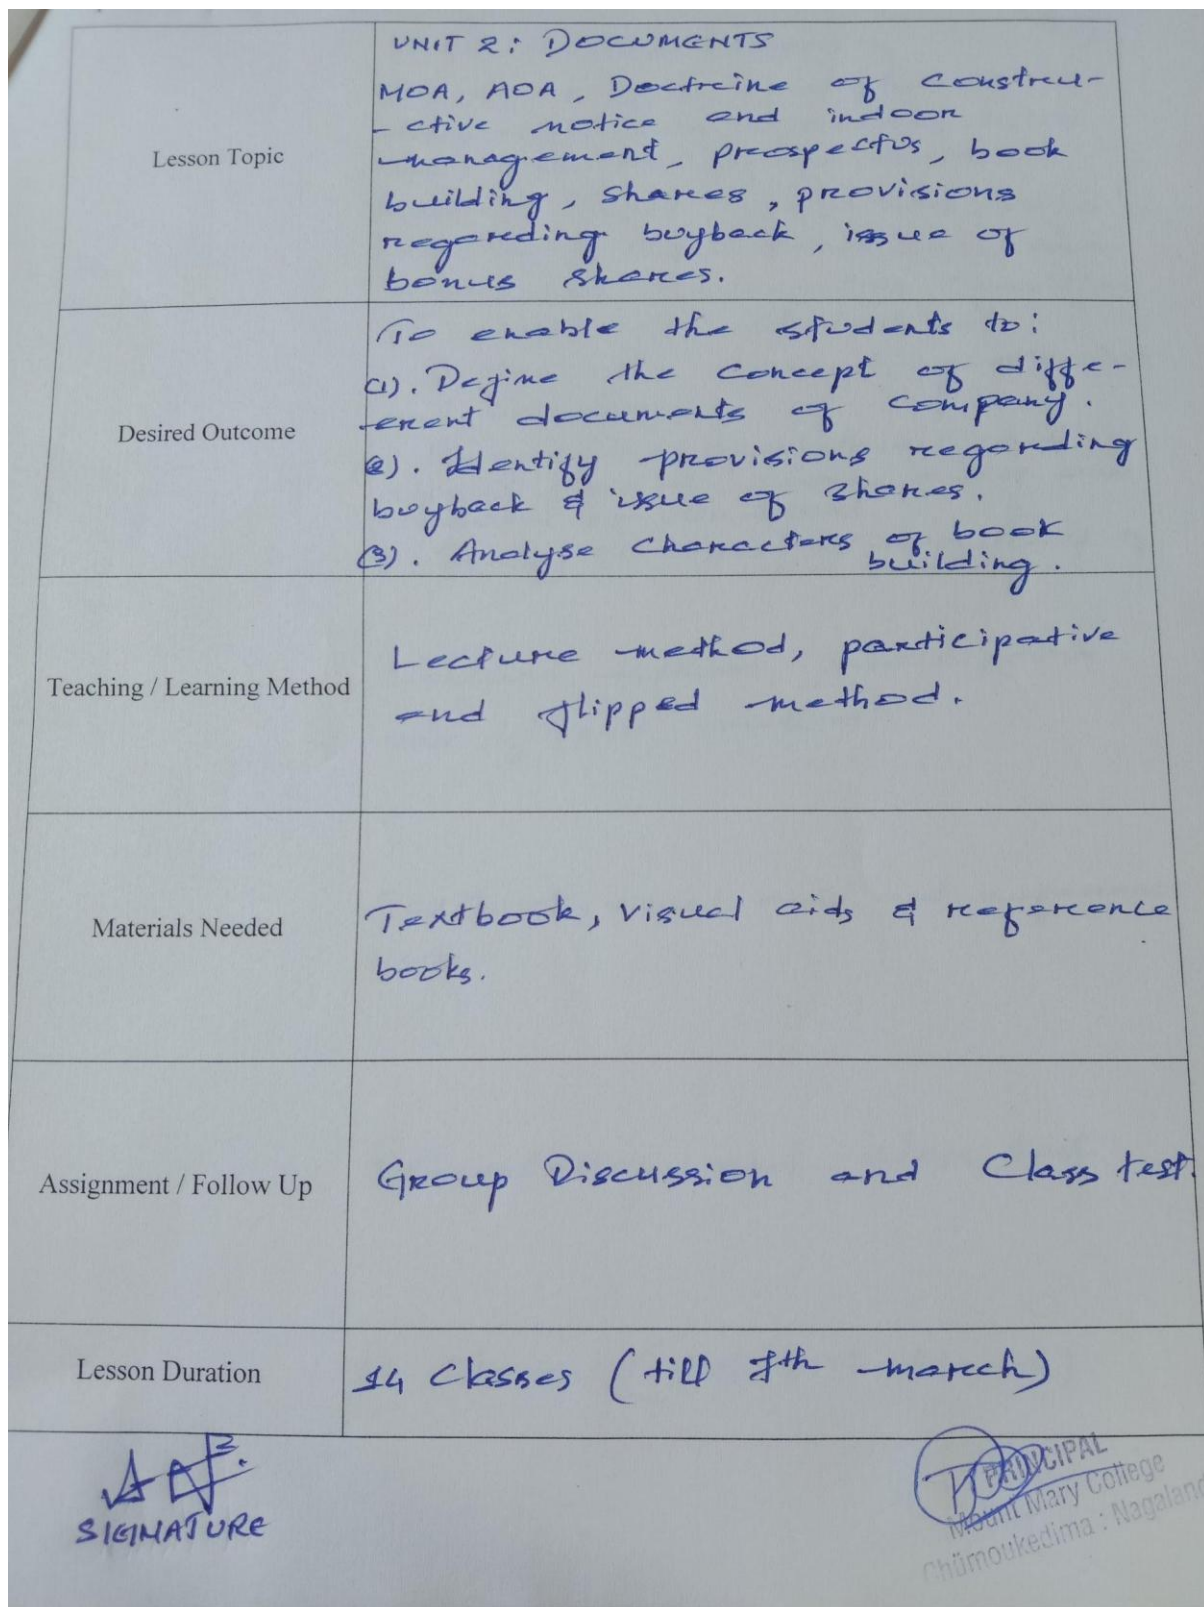 Lesson Topic
UNIT 2: DOCUMENTS
MOA, AOA, Doctreine of constreu-
-ctive notice and indoor
management, preospectus, book
building, shares, provisions
regareding buyback, issue of
bonus shares.
Desired Outcome
To enable the students to:
(1). Define the concept of diffe-
-erent documents of company.
(2). Identify provisions regarding
buyback & issue of shares.
(3). Analyse characters of book
building.
Teaching / Learning Method
Lecture method, participative
and flipped method.
Materials Needed
Textbook, visual aids & reference
books.
Assignment / Follow Up
Group Discussion and Class test.
Lesson Duration
14 classes (till 7th marech)
SIGNATURE
PRINCIPAL
Mount Mary College
Chümoukedima : Nagaland